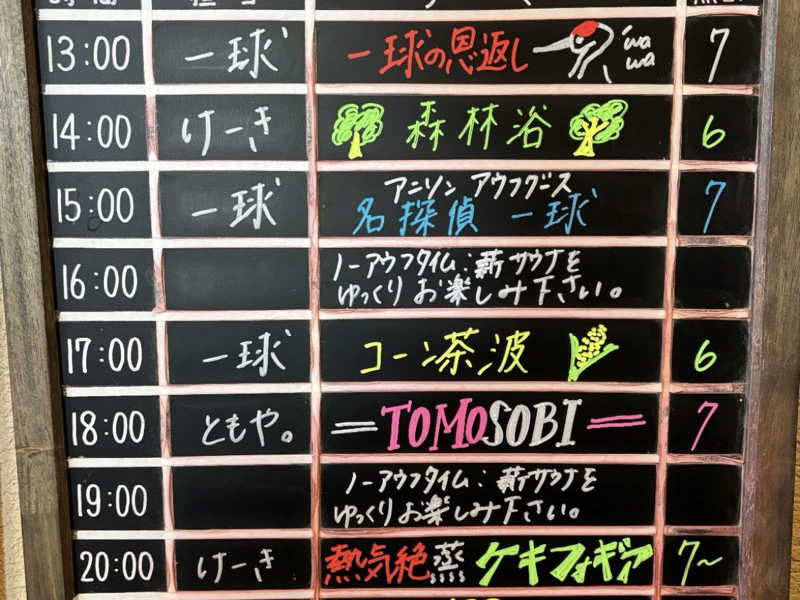 13:00 一球 一球の恩返し wa wa 7
14:00 けーき 森林浴 6
15:00 一球 アニソン アウフグース
名探偵 一球 7
16:00 ノーアウフタイム:薪サウナを
ゆっくりお楽しみ下さい。
17:00 一球 コーン茶波 6
18:00 ともや。 =TOMOSOBI= 7
19:00 ノーアウフタイム:薪サウナを
ゆっくりお楽しみ下さい。
20:00 けーき 熱気絶蒸 ゲキフォギア 7~